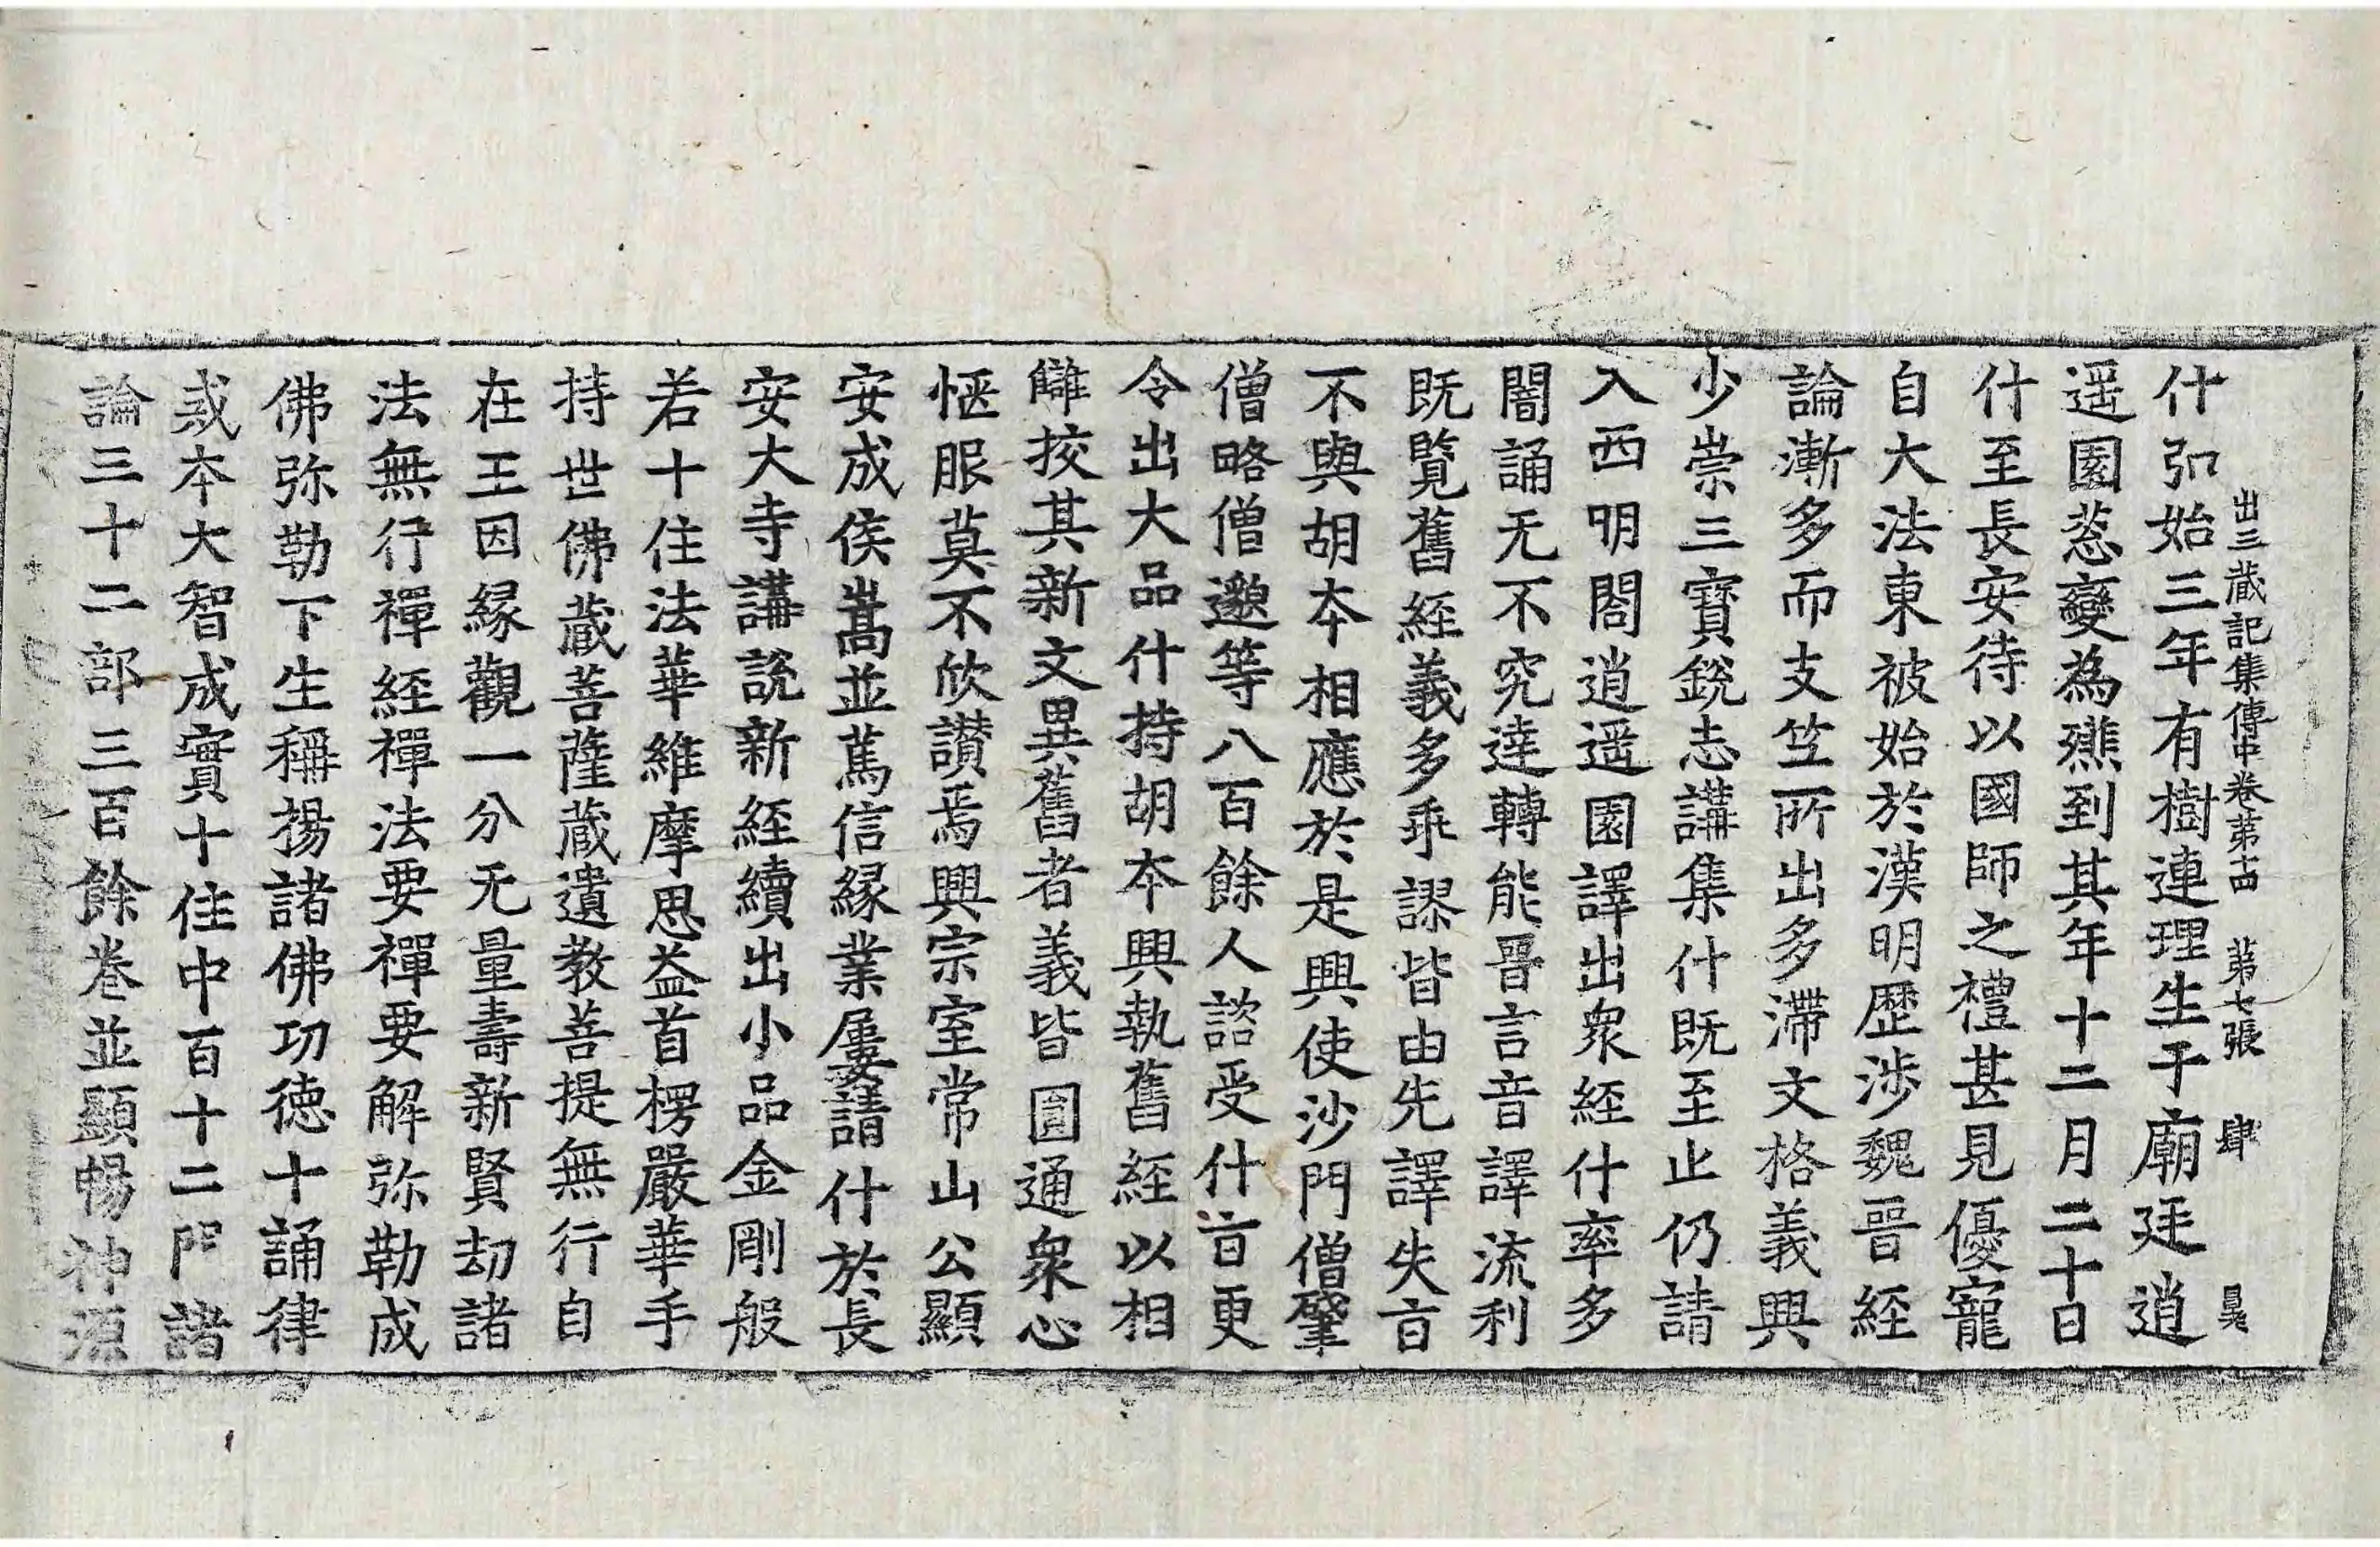 出三藏記集傳中卷第十四 第七張 肆
什弘始三年有樹連理生于廟廷逍
遥園䓗變為䕮到其年十二月二十日
什至長安待以國師之禮甚見優寵
自大法東被始於漢明歷涉魏晉經
論漸多而支竺所出多滯文格義興
少崇三寶銳志講集什既至止仍請
入西明閣逍遥園譯出衆經什率多
闇誦无不究達轉能晉言音譯流利
既覽舊經義多乖謬皆由先譯失㫖
不與胡本相應於是興使沙門僧肇
僧略僧邈等八百餘人諮受什㫖更
令出大品什持胡本興執舊經以相
讎挍其新文異舊者義皆圓通衆心
愜服莫不欣讃焉興宗室常山公顯
安成侯嵩並萬信緣業屢請什於長
安大寺講說新經續出小品金剛般
若十住法華維摩思益首楞嚴華手
持世佛藏菩薩藏遺教菩提無行自
在王因緣觀一分无量壽新賢劫諸
法無行禪經禪法要禪要解弥勒成
佛弥勒下生稱揚諸佛功德十誦律
戒本大智成實十住中百十二門諸
論三十二部三百餘卷並顯暢神源